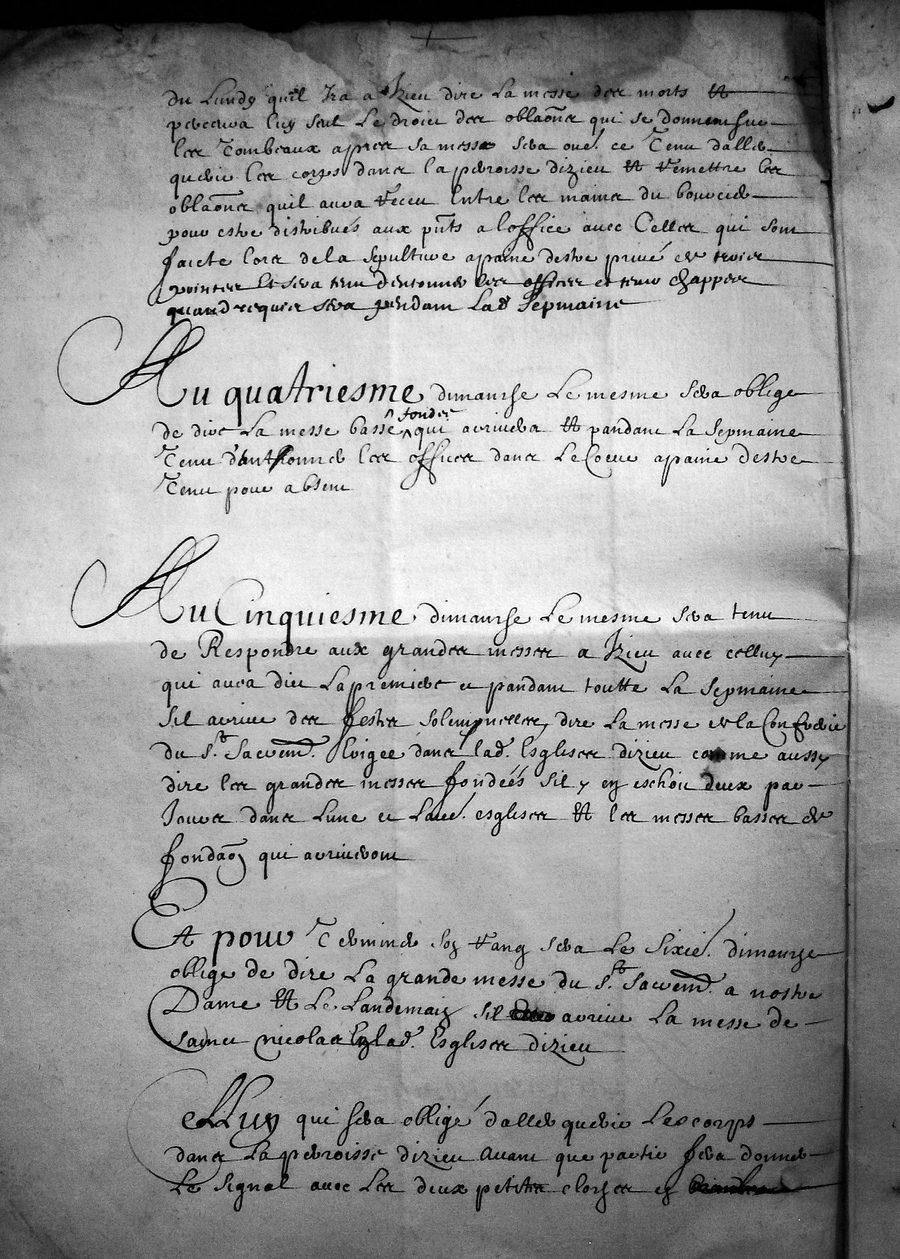 du Lundy quil Ira a Izieu dire La messe des morts Et
percevra luy seul Le droict des oblaõns qui se donnent sur
les Tombeaux apres sa messe sera oué. ce Tenu daller
querir les corps dans la perroisse dizieu Et remettre les
oblaõns quil aura receu Entre les mains du boursier
pour estre distribués aux pñts a loffice avec Celles qui sont
faicte lors de la sepulture apaine destre privé de trois
pointes Et sera tenu dentonner les offices et tenir chappes
quand requis sera pendant Lad. Sepmaine
Au quatriesme dimanche Le mesme sera oblige
de dire La messe basse fondée qui arrivera Et pandant La Sepmaine
Tenu d'entonner les offices dans Le Coeur apaine destre
Tenu pour absent
Au Cinquiesme dimanche Le mesme sera tenu
de Respondre aux grandes messes a Izieu avec celluy
qui aura dict La premiere et pandant toutte La Sepmaine
Sil arrive des festes solempnelles dire La messe de la Confrerie
du St. Sacremt. Erigée dans lad. Esglise dizieu comme aussy
dire les grandes messes fondées Sil y en eschoit deux par
Jours dans Lune et Laue. esglises Et les messes basses de
fondaõn qui arriveront
Et pour Terminer son rang sera Le Sixie. dimanche
oblige de dire La grande messe du St. Sacremt. a nostre
Dame Et Le Landemain sil arrive La messe de
Sainct nicolas En lad. Esglise dizieu
Celluy qui sera obligé daller querir Les corps
dans La perroisse dizieu avant que partir fera donner
Le Signal avec Les deux petites cloches en